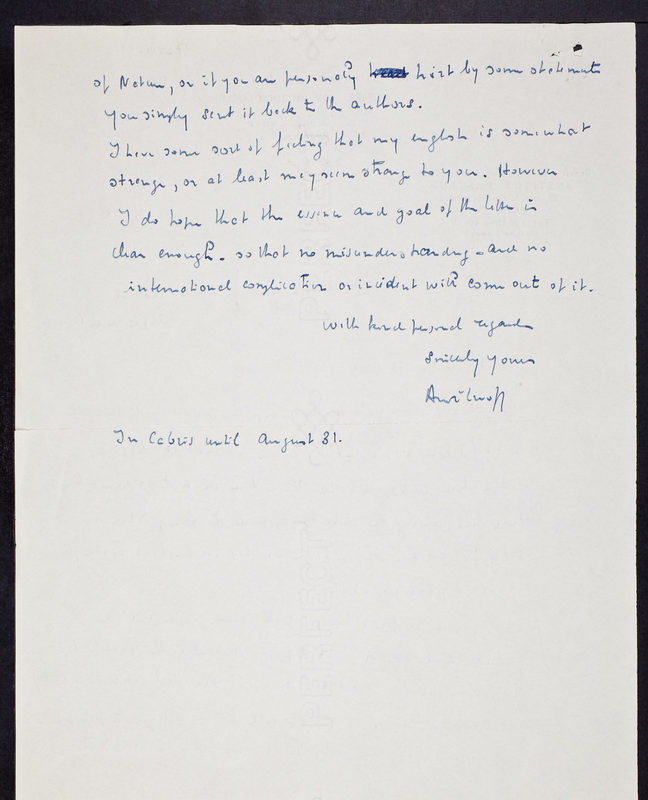 of Nature, or if you are personally hurt by some statements
you simply sent it back to the authors.
I have some sort of feeling that my english is somewhat
strange, or at least may seem strange to you. However
I do hope that the essence and goal of the letter is
clear enough. so that no misunderstanding - and no
international complication or incident will come out of it.
with kind personal regards
Sincerely yours
André Lwoff
In Cabris until August 31.
PERFECT